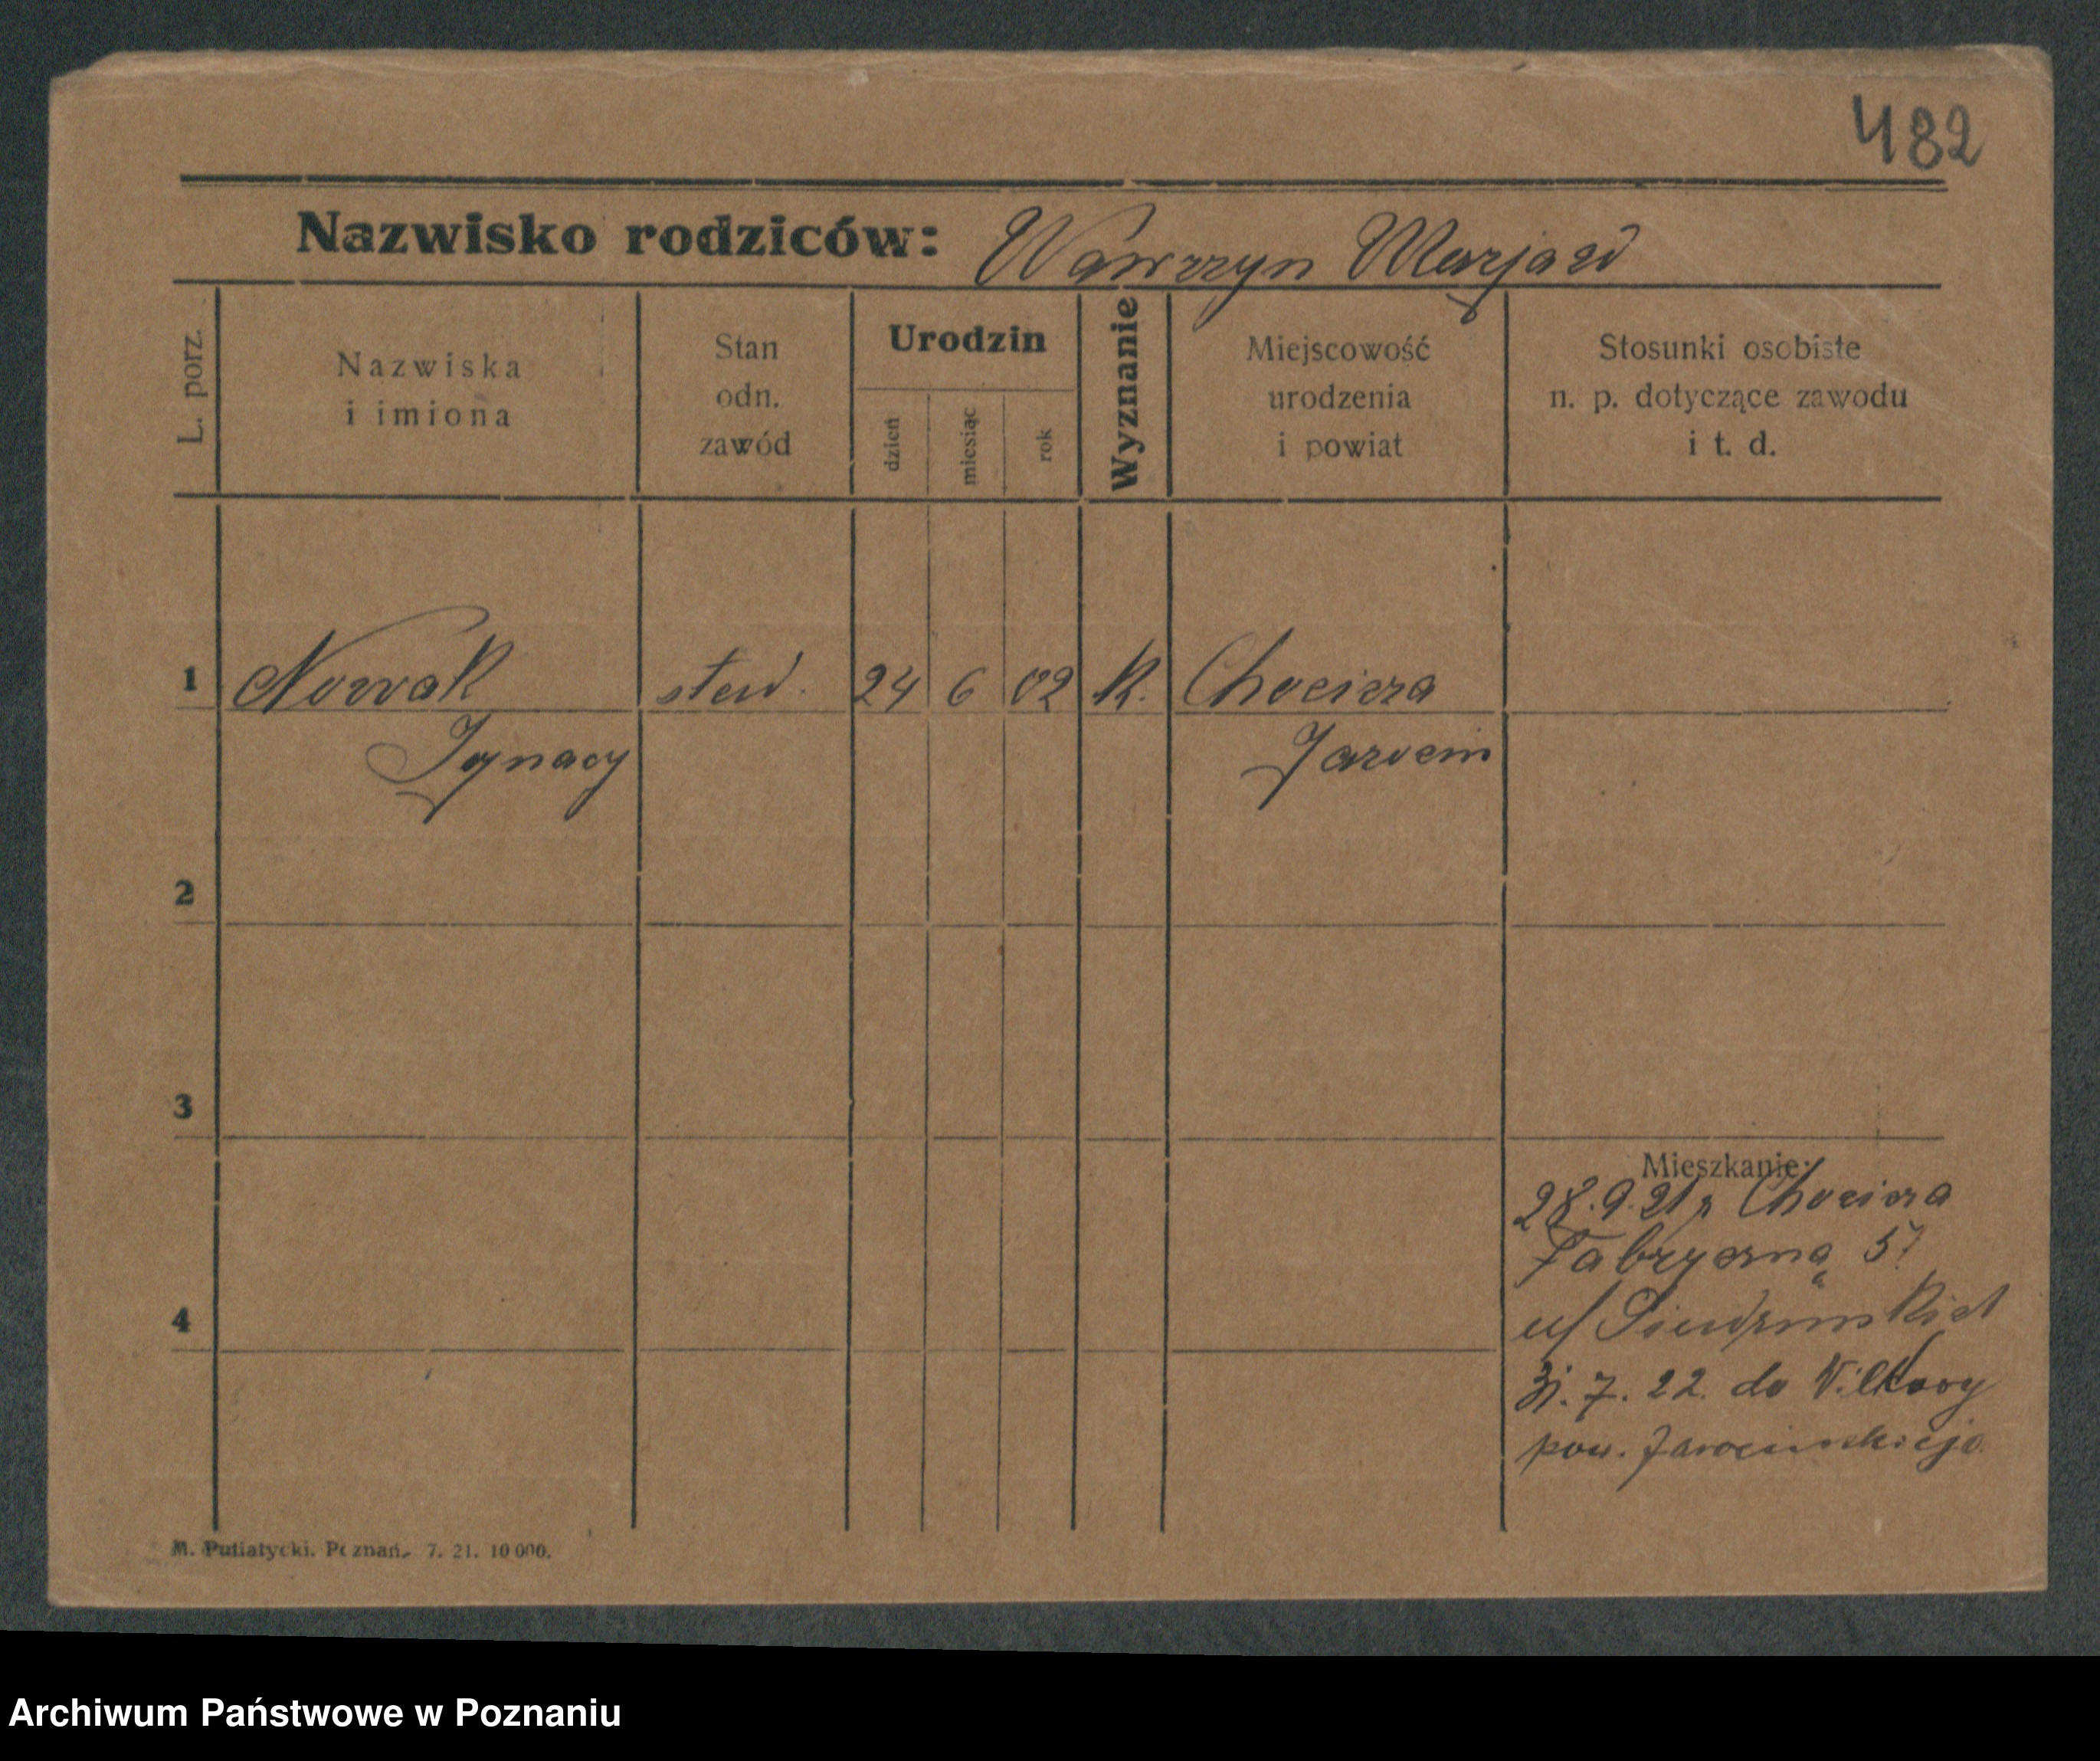 482
Nazwisko rodziców: Wawrzyn
L. porz.
Nazwiska
i imiona
Stan
odn.
zawód
Urodzin
dzień
miesiąc
rok
Wyznanie
Miejscowość
urodzenia
i powiat
Stosunki osobiste
n. p. dotyczące zawodu
i t. d.
1 Nowak 24 6 02 K. Chocicza
Ignacy Jarocin
2
3
Mieszkanie:
28.9.21 z Chocicza
Fabryczna
4
31.7.22. do Wilkowy
pow. Jarocinskiego
M. Putiatycki. Poznań. 7. 21. 10 000.
Archiwum Państwowe w Poznaniu